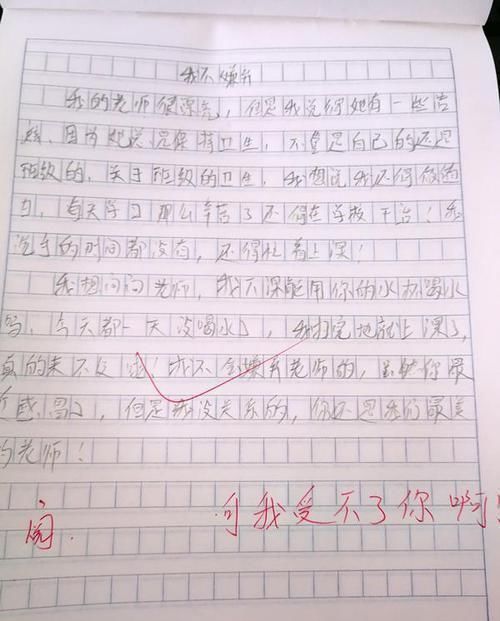 我不嫌弃
我的老师很漂亮，但是我觉得她有一些洁
癖，因为她总是保持卫生，不管是自己的还是
班级的，关于班级的卫生，我想说我还得做值
日，每天学习那么辛苦了还得在学校干活！我
洗手的时间都没有，还得忙着上课！
我想问问老师，我下课能用你的水杯喝水
吗，今天都一天没喝水了，我扫完地就上课了，
真的来不及！我不会嫌弃老师的，虽然你最
近感冒了，但是我没关系的，你还是我们最美
的老师！
阅. 可我受不了你啊！